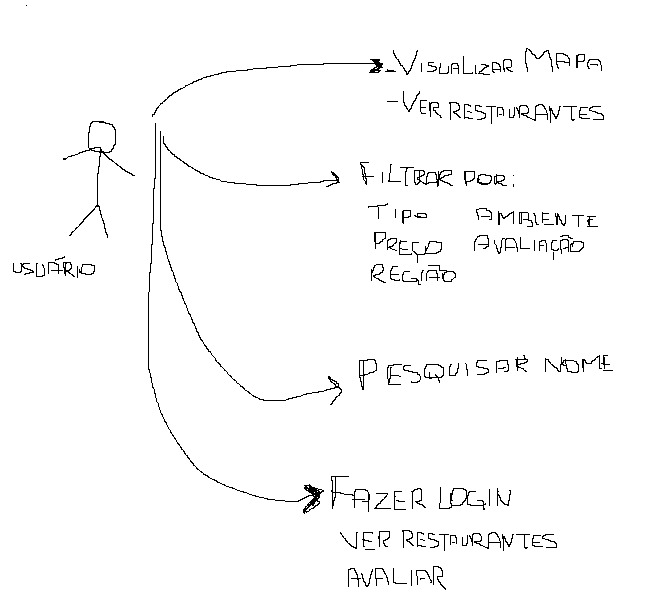 -VISUALIZAR MAPA
-VER RESTAURANTES
FILTRAR POR:
TIPO AMBIENTE
PREÇO AVALIAÇÃO
REGIÃO
USUÁRIO
PESQUISAR NOME
FAZER LOGIN
VER RESTAURANTES
AVALIAR